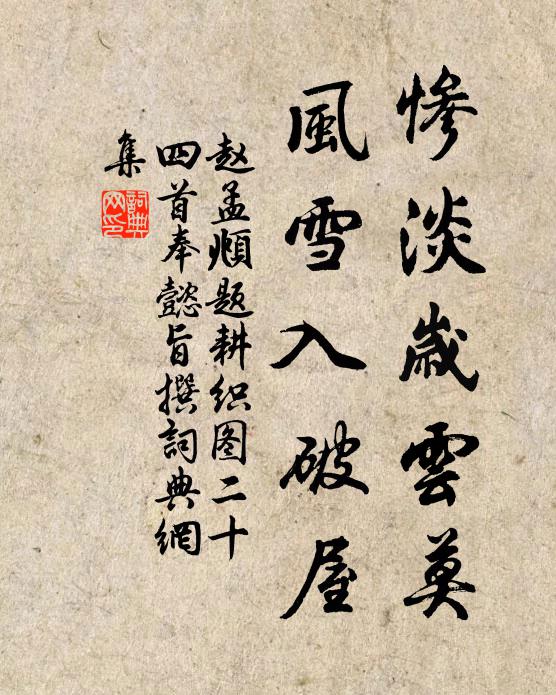 惨淡歲雲莫
風雪入破屋
赵孟頫题耕织图二十
四首奉懿旨撰詞典網
集
詞典网印